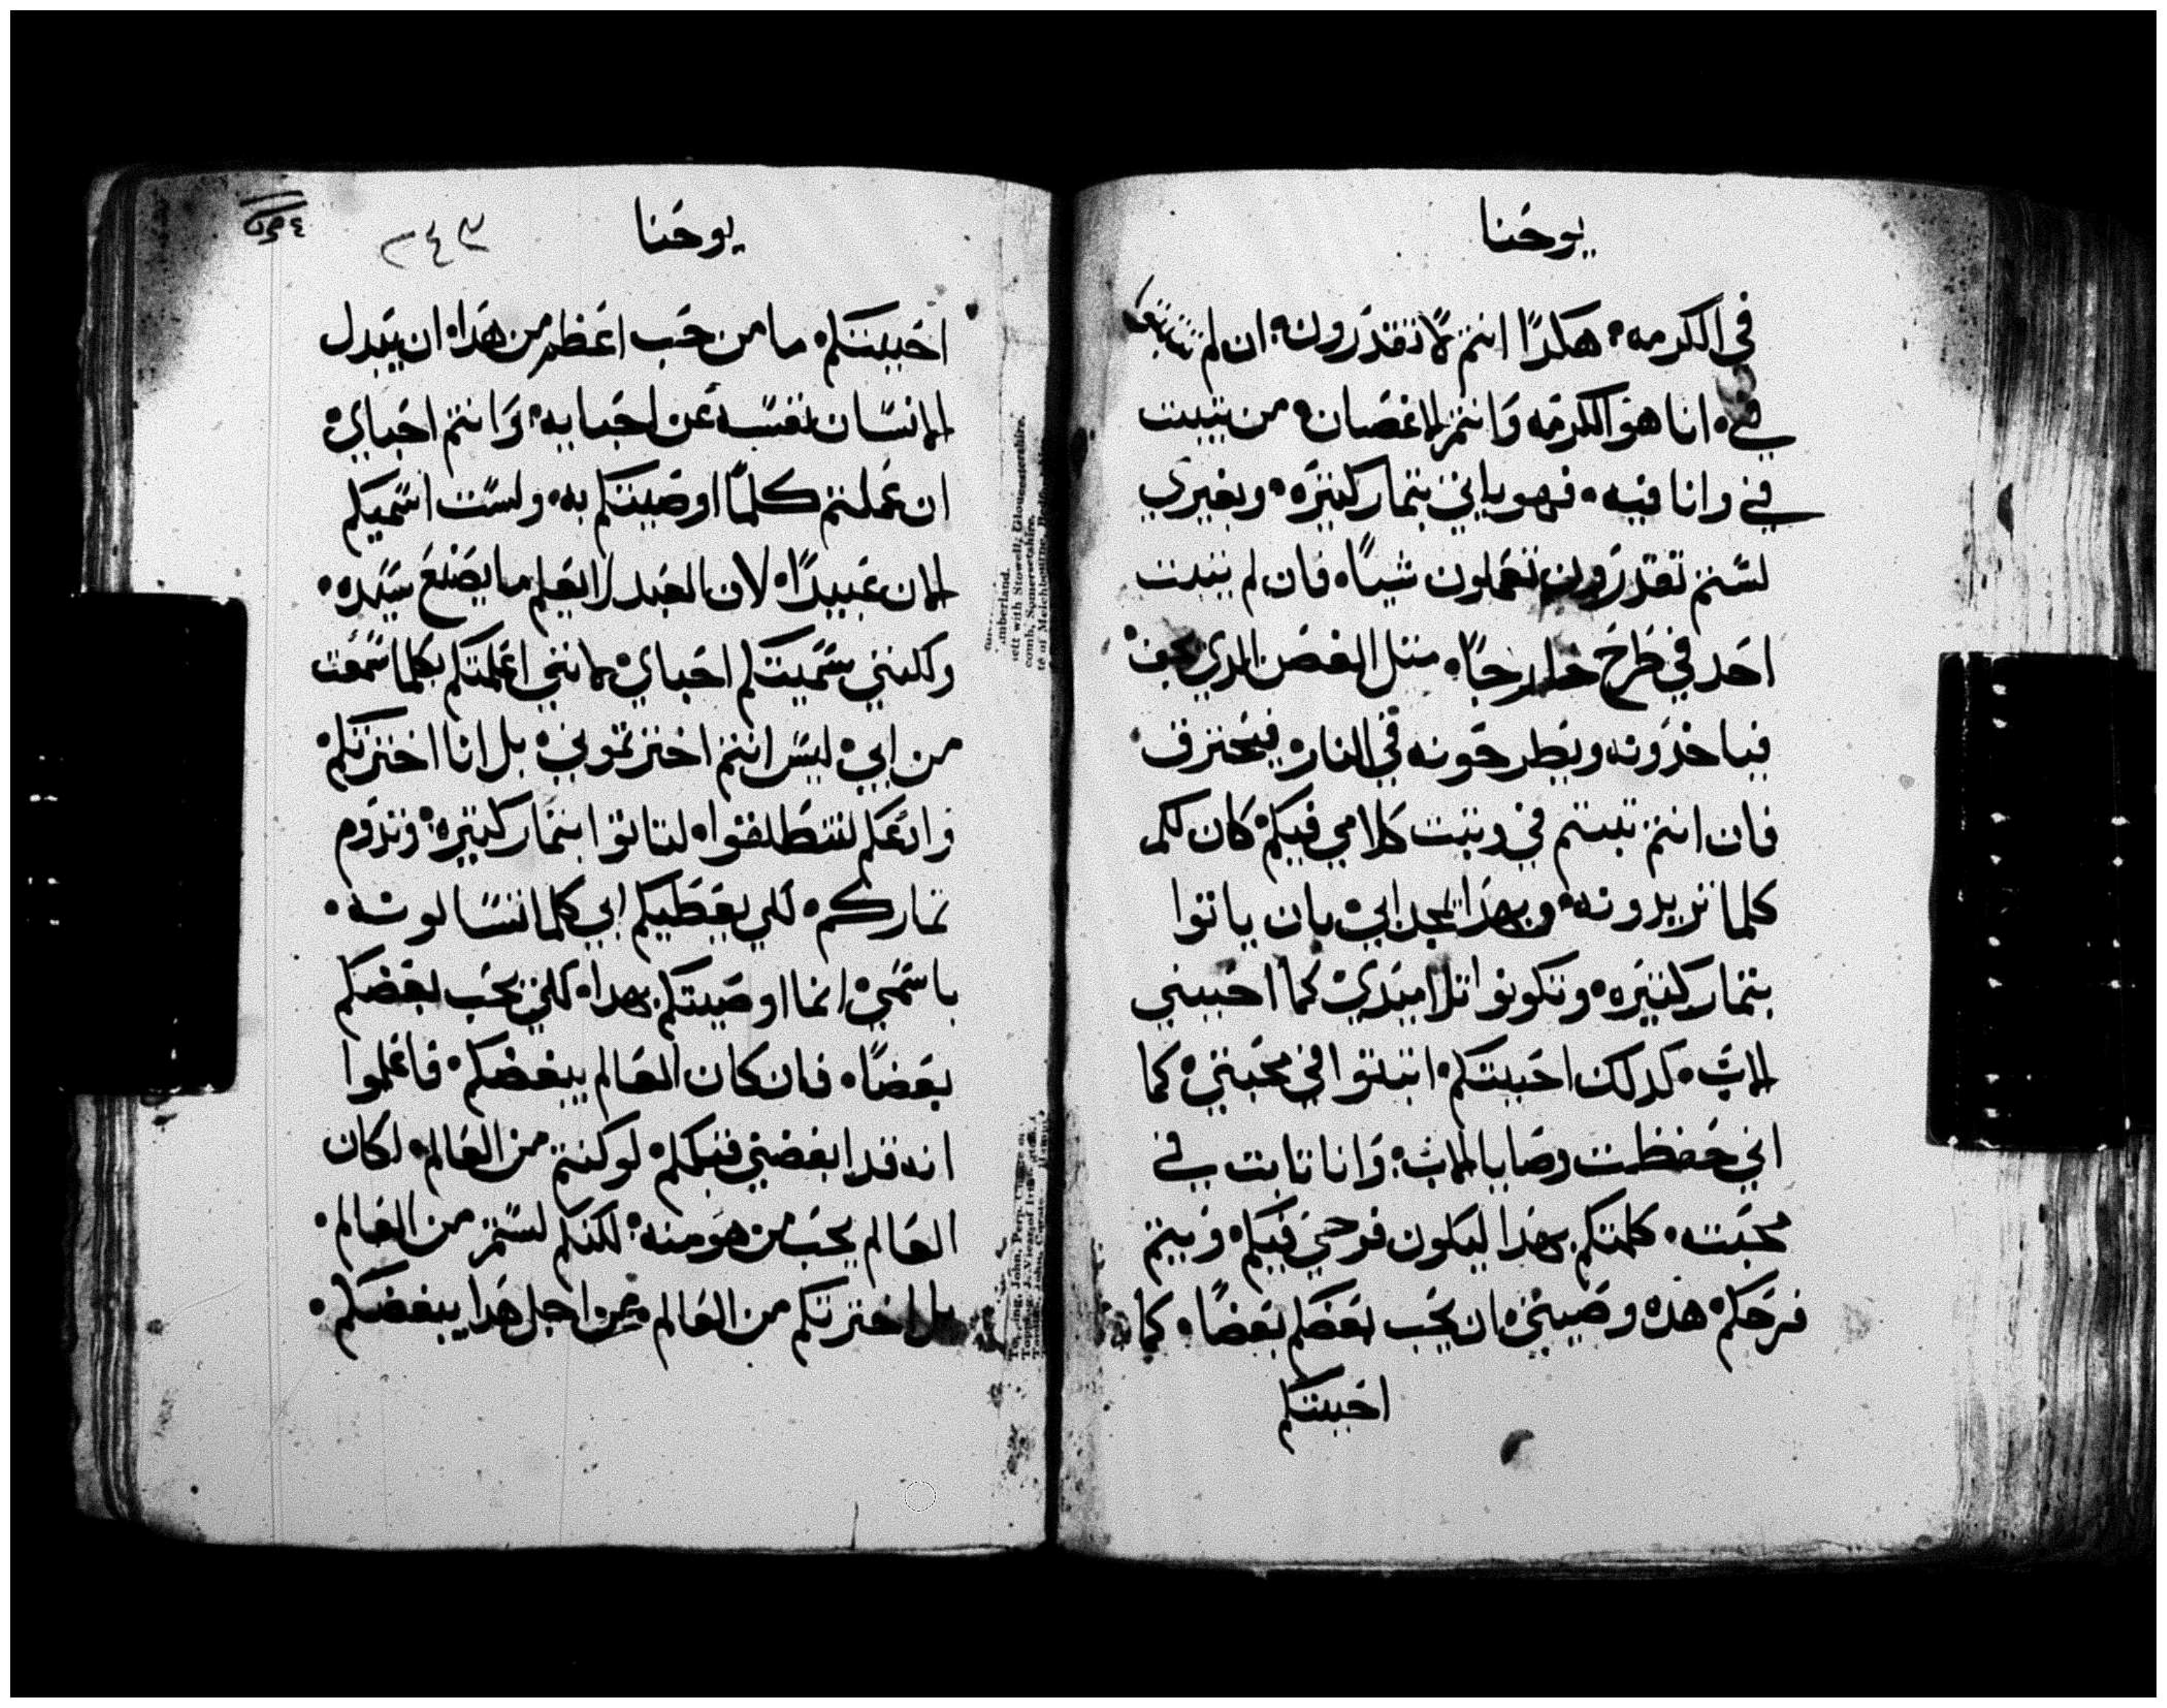 يوحنا
في الكرمه هكدا انتم لا تقدرون ان لم
في انا هو الكرمه وانتم الاغصان من يتبت
في وانا فيه فهو ياتي بتمار كتيره وبغيري
لستم تقدرون تعملون شيا فان لم يتبت
احد في طرح خارجا متل الغصن الدي يجف
فياخدونه ويطرحونه في النار فيحترق
فان انتم تبتم في وتبت كلامي فيكم كان لكم
كلما تريدونه وبهدا يمجد ابي بان ياتوا
بتمار كتيره وتكونوا تلاميدي كما احببني
الاب كدلك احببتكم اتبتوا في محبتي كما
اني حفظت وصايا الاب وانا تابت في
محبته كلمتكم بهدا ليكون فرحي فيكم ويتم
فرحكم هده وصيتي ان يحب بعضكم بعضا كما
احببتكم
يوحنا
٢٤٣
احببتكم ما من حب اعظم من هدا ان يبدل
الانسان نفسه عن احبايه وانتم احباي
ان عملتم كلما اوصيتكم به ولست اسميكم
الان عبيدا لان العبد لا يعلم ما يصنع سيده
ولكنني سميتكم احباي لانني اعلمتكم بكلما سمعت
من ابي ليس انتم اخترتموني بل انا اخترتكم
وادعكم لتنطلقوا لتاتوا بتمار كتيره وتدوم
تماركم لكي يعطيكم ابي كلما تسالونه
باسمي انما اوصيتكم بهدا لكي يحب بعضكم
بعضا فان كان العالم يبغضكم فاعلموا
انه قد ابغضني قبلكم لو كنتم من العالم لكان
العالم يحب من هو منه لكنكم لستم من العالم
بل اخترتكم من العالم من اجل هدا يبغضكم